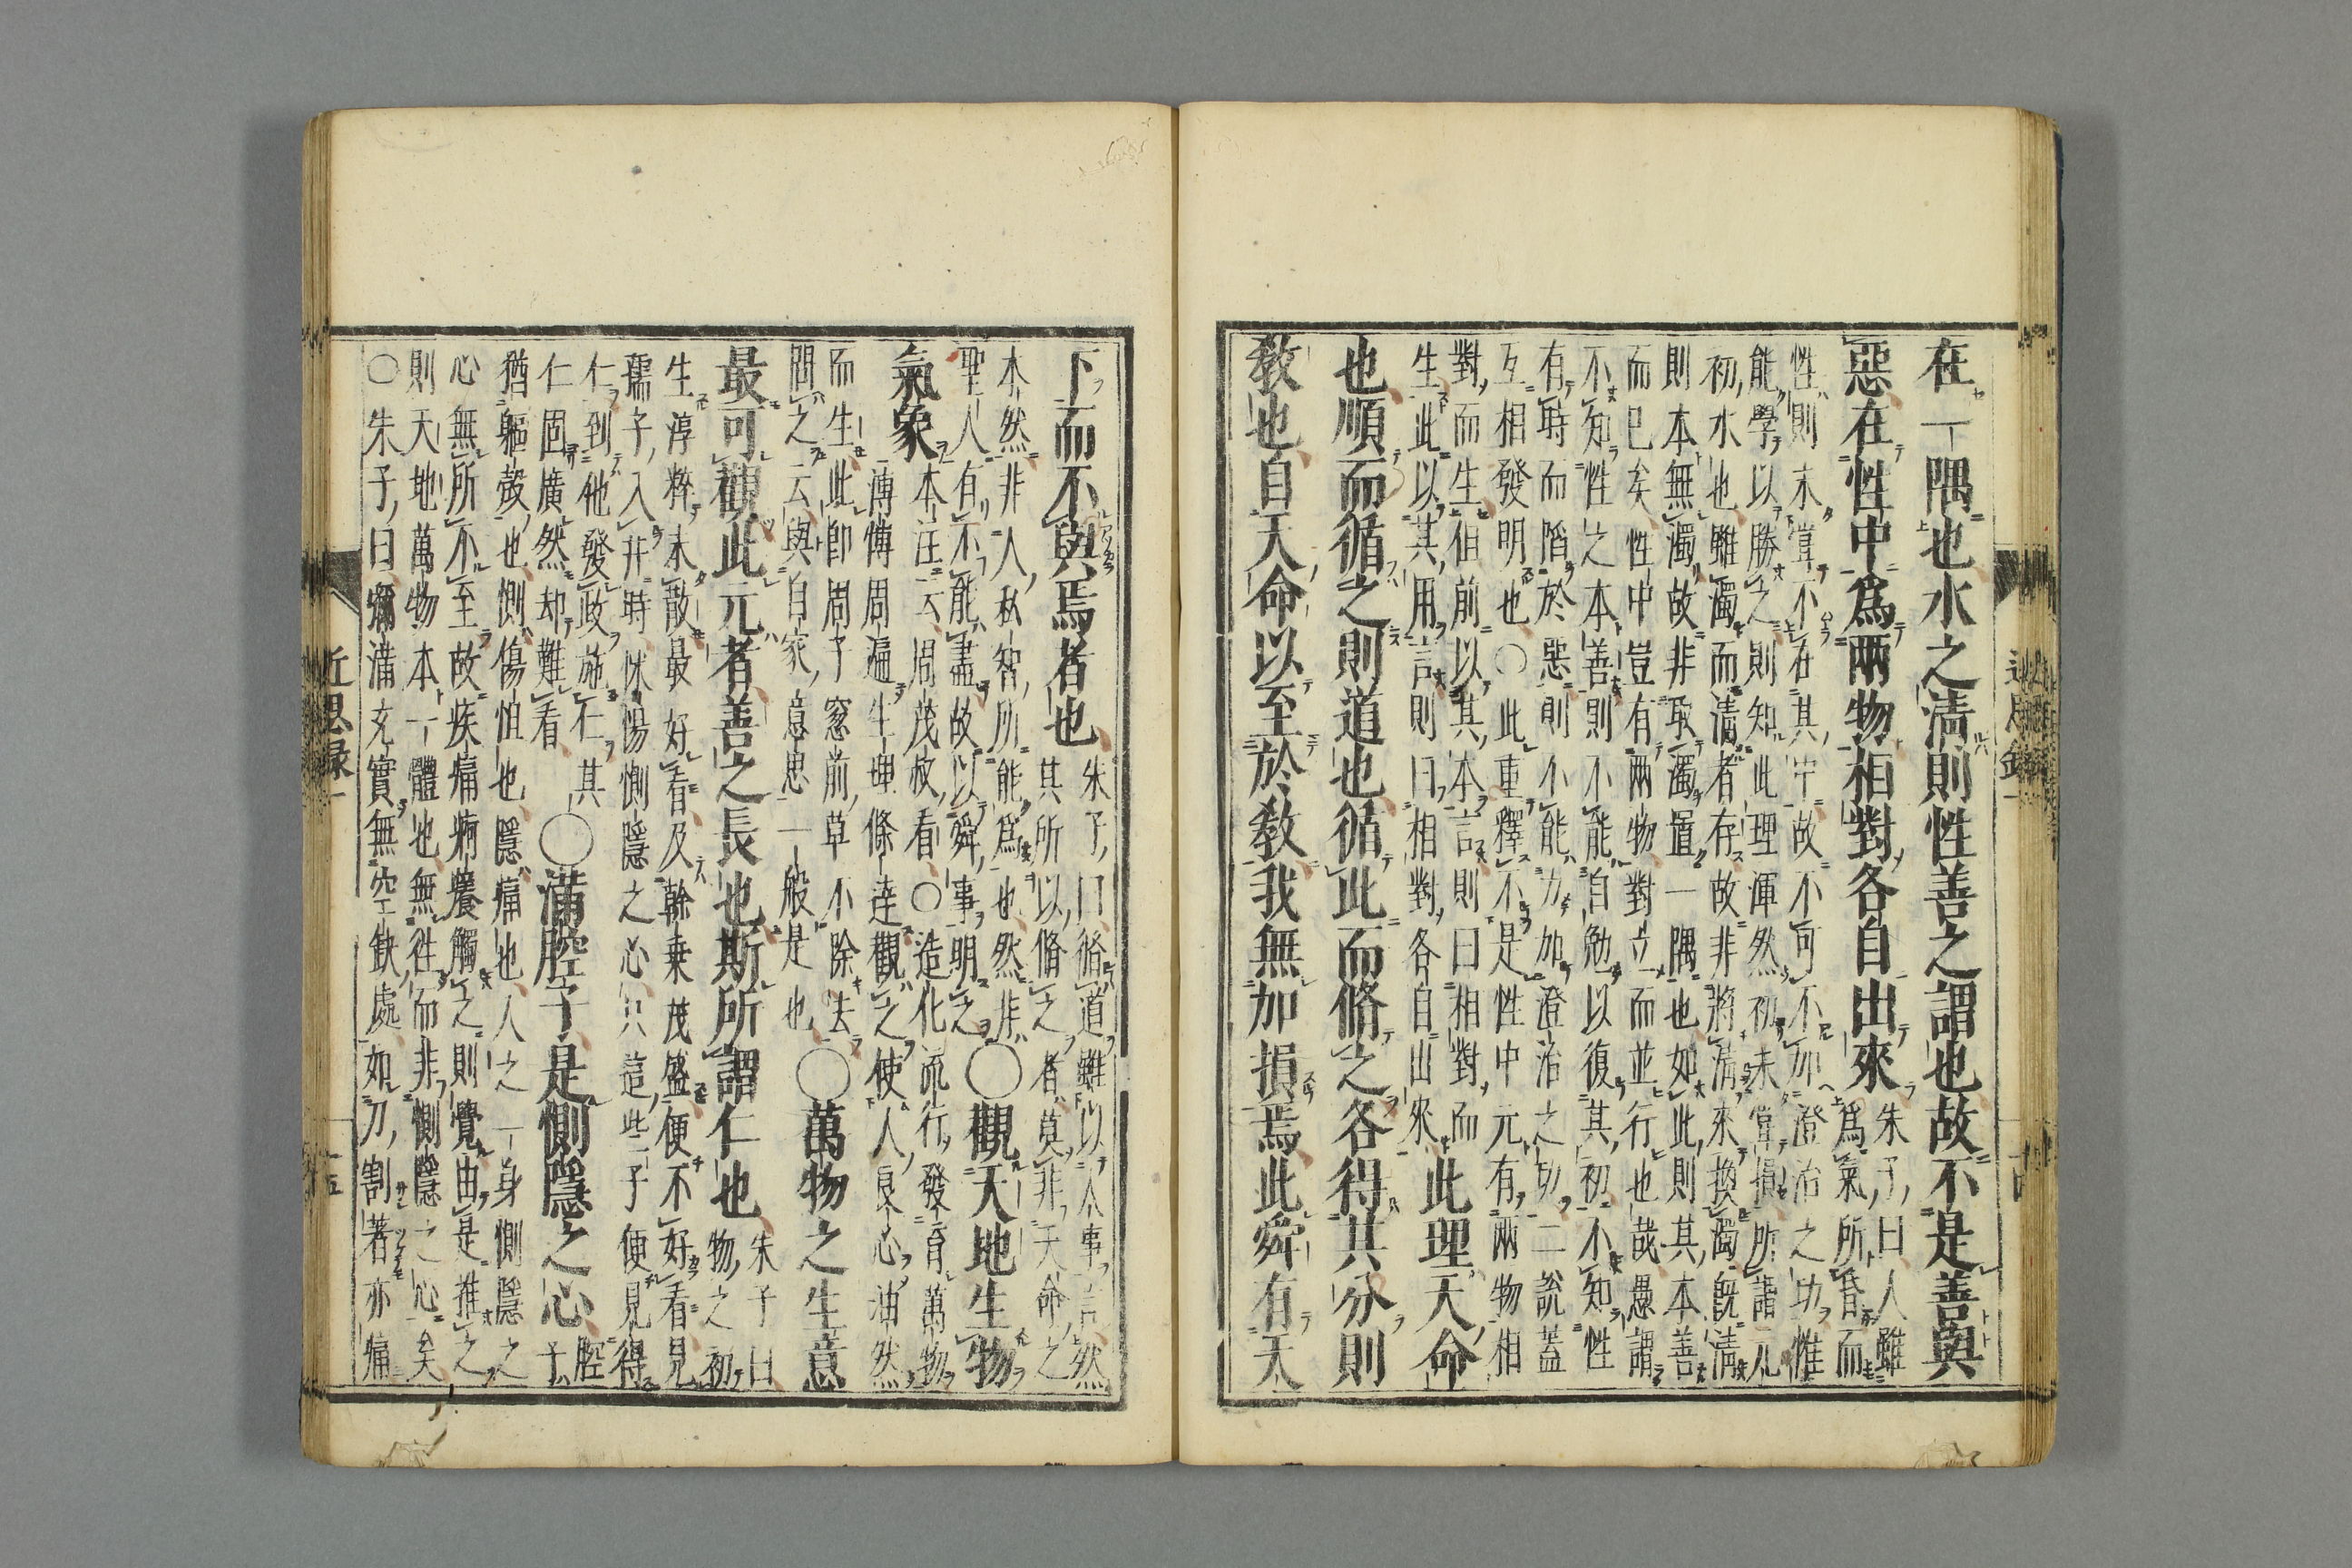 在一隅也水之淸則性善之謂也故不是善與
惡在性中爲兩物相對各自出來
朱子曰人雖
爲氣所昏而
性則未嘗不在其中故不可不加澄治之功惟
能學以勝之則知此理渾然初未嘗損所謂元
初水也雖濁而淸者存故非將淸來換濁旣淸
則本無濁故非取濁置一隅也如此則其本善
而已矣性中豈有兩物對立而並行也哉愚謂
不知性之本善則不能自勉以復其初不知性
有時而陷於惡則不能力加澄治之功二說蓋
互相發明也○此重釋不是性中元有兩物相
對而生但前以其本言則曰相對而
生此以其用言則曰相對各自出來
此理天命
也順而循之則道也循此而脩之各得其分則
敎也自天命以至於敎我無加損焉此舜有天
下而不與焉者也
朱子曰脩道雖以人事言然
其所以脩之者莫非天命之
本然非人私智所能爲也然非
聖人有不能盡故以舜事明之
○觀天地生物
氣象
本注云周茂叔看○造化流行發育萬物
溥博周遍生理條達觀之使人良心油然
而生此卽周子窓前草不除去
問之云與自家意思一般是也
○萬物之生意
最可觀此元者善之長也斯所謂仁也
朱子曰
物之初
生淳粹未散最好看及幹葉茂盛便不好看見
孺子入井時怵惕惻隱之心只這些子便見得
仁到他發政施仁其
仁固廣然却難看
○滿腔子是惻隱之心
腔
子
猶軀殼也惻傷怛也隱痛也人之一身惻隱之
心無所不至故疾痛痾癢觸之則覺由是推之
則天地萬物本一體也無往而非惻隱之心矣
○朱子曰彌滿充實無空缺處如刀割著亦痛
近思録一